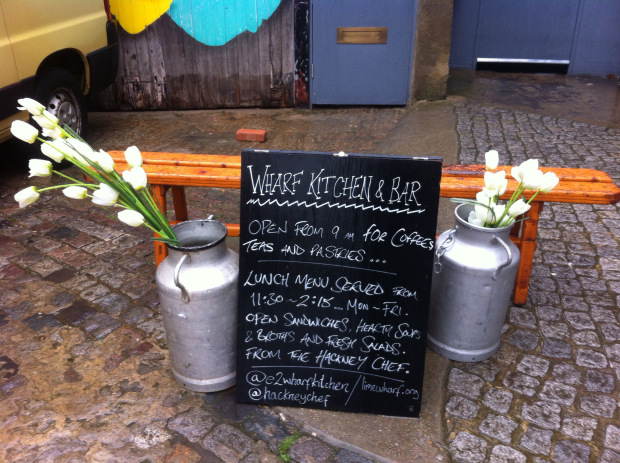 WHARF KITCHEN & BAR
OPEN FROM 9 AM FOR COFFEES
TEAS AND PASTRIES ...
LUNCH MENU SERVED FROM
11:30 ~ 2:15... MON ~ FRI.
OPEN SANDWICHES, HEARTY SOUPS
& BROTHS AND FRESH SALADS.
FROM THE HACKNEY CHEF.
@e2wharfkitchen / limewharf.org
@hackneychef